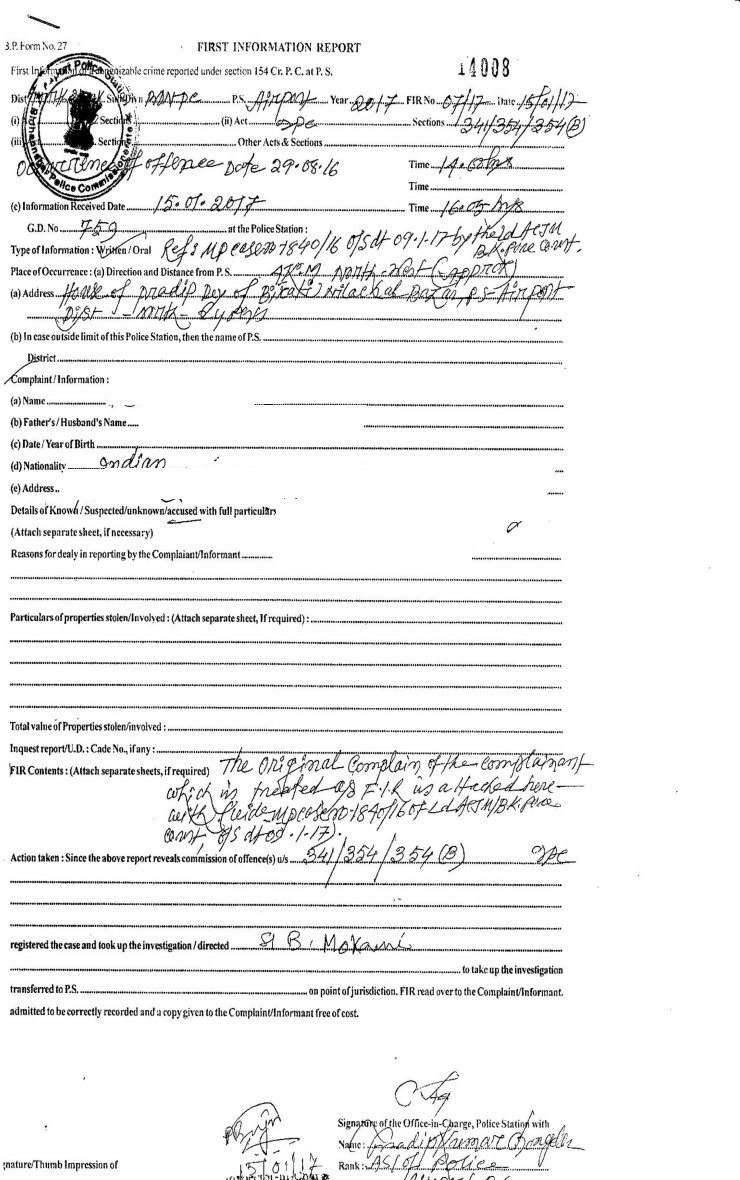 B.P. Form No. 27
FIRST INFORMATION REPORT
First Information of a cognizable crime reported under section 154 Cr. P. C. at P. S. 14008
Dist P.S. Airport Year 2017 FIR No 07/17 Date 15/01/17
(i) Section (ii) Act Sections 341/354/354(B)
(iii) Section Other Acts & Sections
offence Date 29.08.16 Time
Time
(c) Information Received Date 15.01.2017 Time 16.05 hrs
G.D. No 759 at the Police Station :
Type of Information : Written / Oral Ref: MP case no 1840/16 by the Ld ACJM
Court.
Place of Occurrence : (a) Direction and Distance from P.S. North-West (Approx)
(a) Address House of Pradip Dey of Birati Nilachal Bazar, PS- Airport
Dist -
(b) In case outside limit of this Police Station, then the name of P.S.
District
Complaint / Information :
(a) Name
(b) Father's / Husband's Name
(c) Date / Year of Birth
(d) Nationality Indian
(e) Address..
Details of Known / Suspected/unknown/accused with full particulars
(Attach separate sheet, if necessary)
Reasons for dealy in reporting by the Complaiant/Informant
Particulars of properties stolen/Involved : (Attach separate sheet, If required) :
Total value of Properties stolen/involved :
Inquest report/U.D. : Cade No., if any :
FIR Contents : (Attach separate sheets, if required) The Original Complain of the complainant
which is treated as F.I.R is attached here-
with MP case no 1840/16 of Ld ACJM/B.K.Pore
court,
Action taken : Since the above report reveals commission of offence(s) u/s 341/354/354(B) IPC
registered the case and took up the investigation / directed SI B.
to take up the investigation
transferred to P.S. on point of jurisdiction. FIR read over to the Complaint/Informant.
admitted to be correctly recorded and a copy given to the Complaint/Informant free of cost.
Signature of the Office-in-Charge, Police Station with
Name : Pradip Kumar
gnature/Thumb Impression of 15/01/17 Rank : ASI of Police